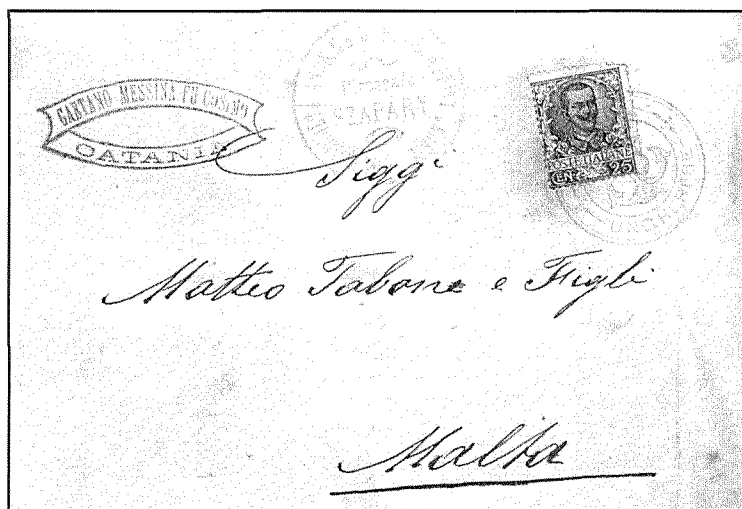 GAETANO MESSINA FU COSIMO
CATANIA
Sigg.i
Matteo Tabone e Figli
Malta
POSTE ITALIANE
CENT. 25